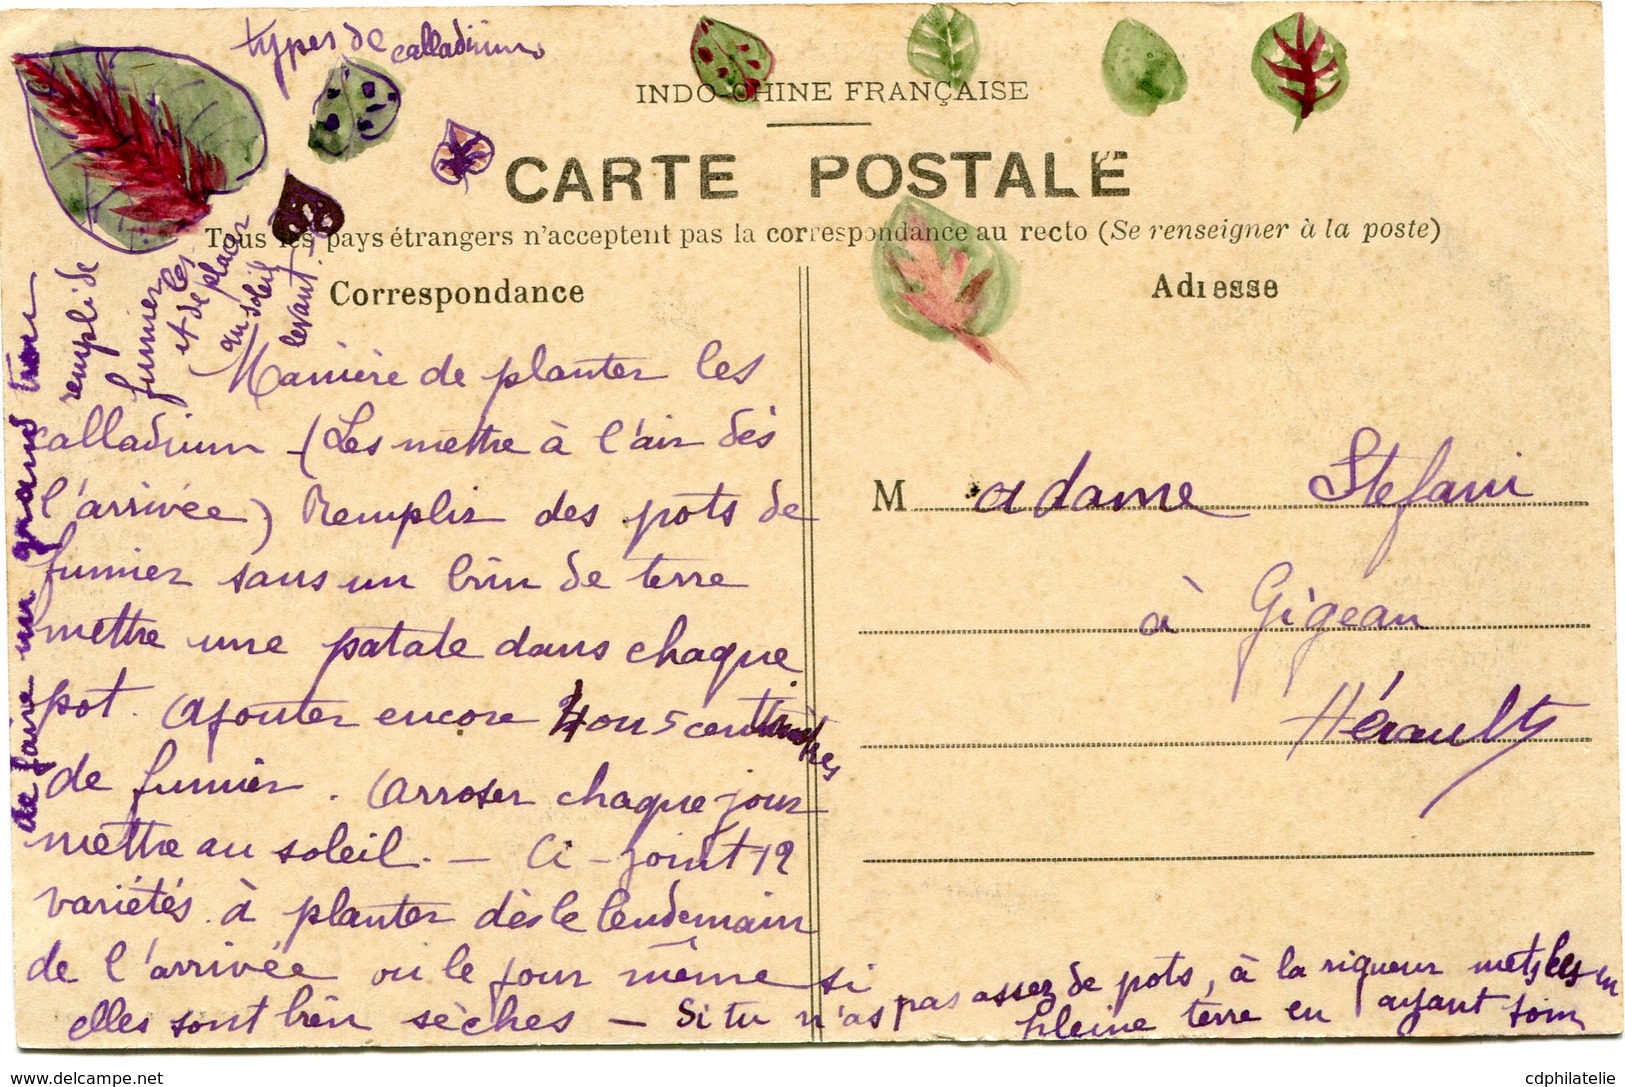 types de
calladium
INDO-CHINE FRANÇAISE
CARTE POSTALE
Tous les pays étrangers n'acceptent pas la correspondance au recto (Se renseigner à la poste)
Correspondance
Adresse
Manière de planter les
calladium - (Les mettre à l'air dès
l'arrivée) Remplir des pots de
fumier sans un brin de terre
mettre une patate dans chaque
pot. Ajouter encore 4 ou 5 centimètres
de fumier. Arroser chaque jour
mettre au soleil. - Ci-joint 12
variétés à planter dès le lendemain
de l'arrivée ou le jour même si
elles sont bien sèches - Si tu n'as pas assez de pots, à la rigueur mets les en
pleine terre en ayant soin
de faire un grand trou
rempli de
fumier
et de les placer
au soleil
levant.
M adame Stefani
à Gigean
Hérault
www.delcampe.net
cdphilatelie